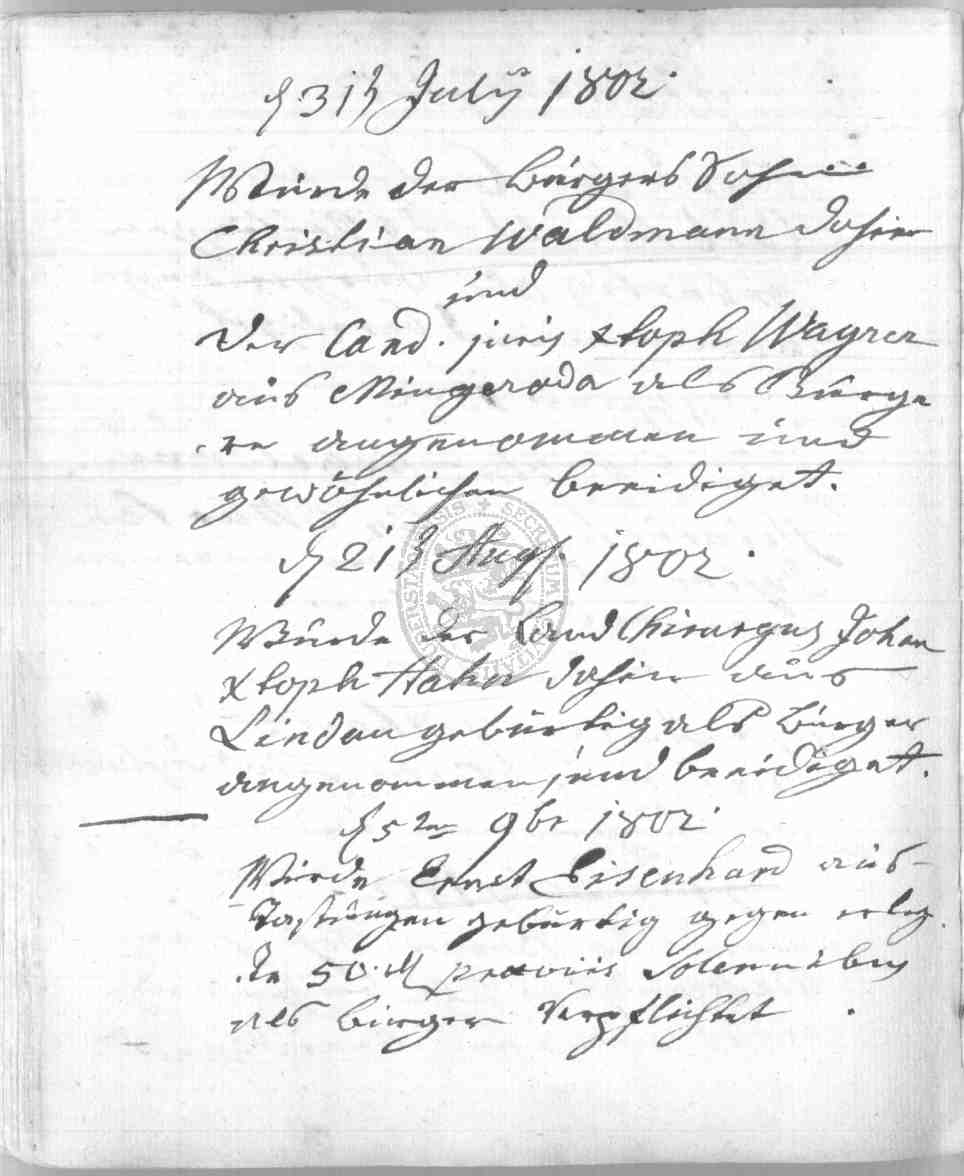 d 31t July 1802.
Wurde der bürgers Sohn
Christian Waldmann dahier
und
der Cand. juris Xtoph Wagner
aus Mingeroda als Bürge
re angenommen und
gewöhnlichen beeidiget.
d 21t Aug. 1802.
Wurde der Land Chirurgus Johan
Xtoph Hahn dahier aus
Lindau gebürtig als bürger
angenommen und beeidiget.
d 5ten 9br 1802.
Wurde Ernst Eisenhard aus
Tastungen gebürtig gegen erleg
te 50 M praeviis Solennibus
als bürger Verpflichtet.